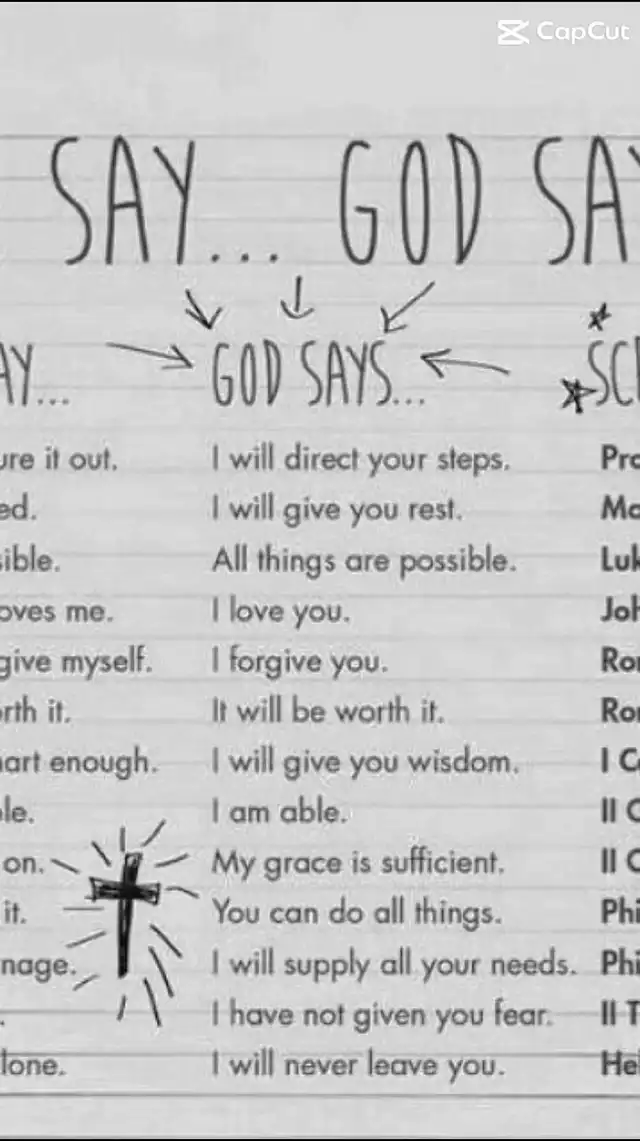 CapCut
SAY... GOD SAY
AY...
GOD SAYS...
SCR
ure it out. I will direct your steps. Pro
ed. I will give you rest. Ma
sible. All things are possible. Luk
oves me. I love you. Joh
give myself. I forgive you. Rom
rth it. It will be worth it. Rom
nart enough. I will give you wisdom. I Co
le. I am able. II C
on. My grace is sufficient. II C
it. You can do all things. Phi
nage. I will supply all your needs. Phi
. I have not given you fear. II T
lone. I will never leave you. Heb